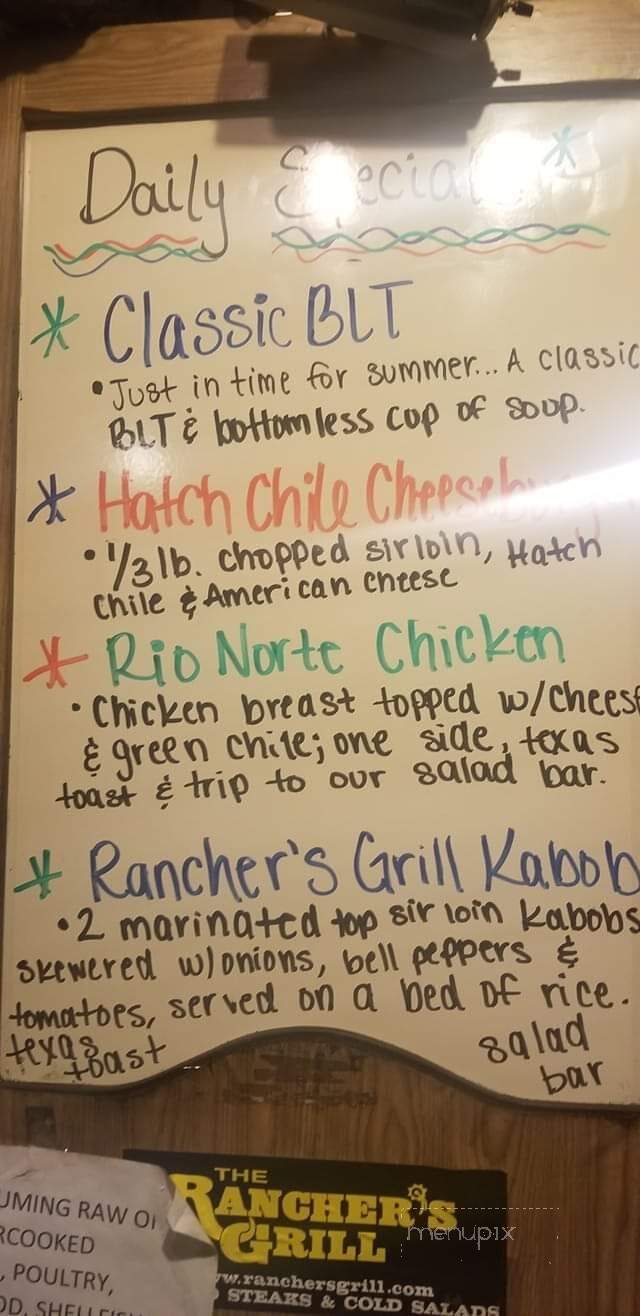 Daily Specials
* Classic BLT
• Just in time for summer... A classic
BLT & bottomless cup of soup.
* Hatch Chile Cheesebu
• 1/3 lb. chopped sirloin, Hatch
Chile & American cheese
* Rio Norte Chicken
• Chicken breast topped w/cheese
& green chile; one side, texas
toast & trip to our salad bar.
* Rancher's Grill Kabob
• 2 marinated top sirloin kabobs
skewered w/onions, bell peppers &
tomatoes, served on a bed of rice.
texas toast
salad bar
THE
RANCHER'S
GRILL
menupix
w.ranchersgrill.com
STEAKS & COLD SALADS
UMING RAW OR
RCOOKED
, POULTRY,
OD, SHELLFISH